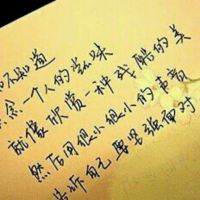 不知道
一个人的滋味
就像欣赏一种残酷的美
然后用很小很小的声音
告诉自己要坚强面对